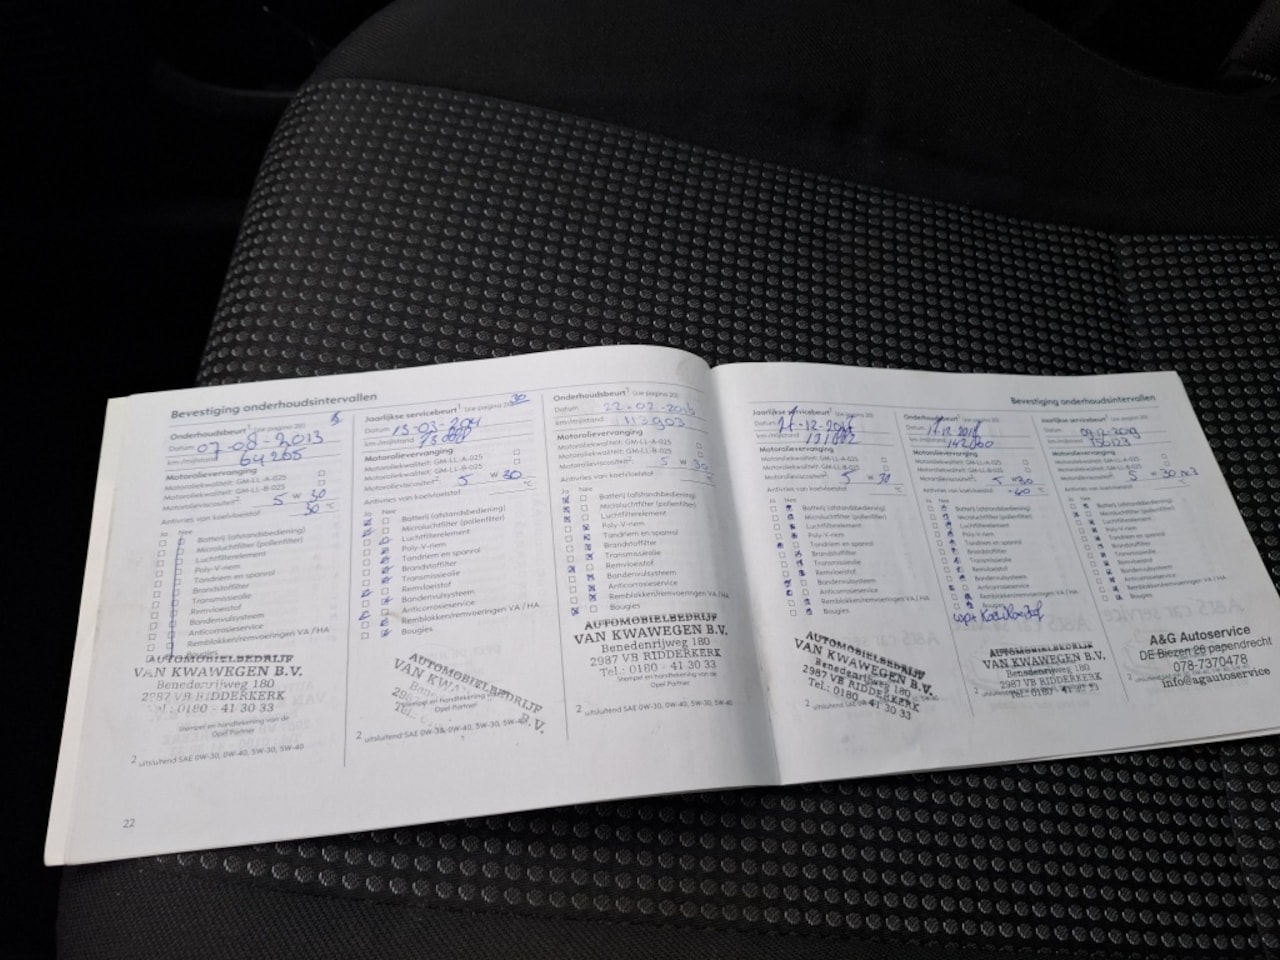 Bevestiging onderhoudsintervallen
Onderhoudsbeurt¹ (zie pagina 20)
Datum 07-08-2013
km-/mijlstand 64265
Motorolievervanging
Motoroliekwaliteit: GM-LL-A-025
Motoroliekwaliteit: GM-LL-B-025
Motorolieviscositeit² 5 W 30
Antivries van koelvloeistof 30 °C
Ja Nee
Batterij (afstandsbediening)
Microluchtfilter (pollenfilter)
Luchtfilterelement
Poly-V-riem
Tandriem en spanrol
Brandstoffilter
Transmissieolie
Remvloeistof
Bandenvulsysteem
Anticorrosieservice
Remblokken/remvoeringen VA / HA
Bougies
AUTOMOBIELBEDRIJF
VAN KWAWEGEN B.V.
Benedenrijweg 180
2987 VB RIDDERKERK
Tel.: 0180 - 41 30 33
Stempel en handtekening van de
Opel Partner
2 uitsluitend SAE 0W-30, 0W-40, 5W-30, 5W-40
22
Jaarlijkse servicebeurt¹ (zie pagina 20) 30
Datum
km-/mijlstand
Motorolievervanging
Motoroliekwaliteit: GM-LL-A-025
Motoroliekwaliteit: GM-LL-B-025
Motorolieviscositeit² 5 W 30
Antivries van koelvloeistof
Ja Nee
Batterij (afstandsbediening)
Microluchtfilter (pollenfilter)
Luchtfilterelement
Poly-V-riem
Tandriem en spanrol
Brandstoffilter
Transmissieolie
Remvloeistof
Bandenvulsysteem
Anticorrosieservice
Remblokken/remvoeringen VA / HA
Bougies
AUTOMOBIELBEDRIJF
VAN KWAWEGEN B.V.
Stempel en handtekening van de
2 uitsluitend SAE 0W-30, 0W-40, 5W-30, 5W-40
Onderhoudsbeurt¹ (zie pagina 20)
Datum 22-02-2016
km-/mijlstand 113903
Motorolievervanging
Motoroliekwaliteit: GM-LL-A-025
Motoroliekwaliteit: GM-LL-B-025
Motorolieviscositeit² 5 W 30
Antivries van koelvloeistof °C
Ja Nee
Batterij (afstandsbediening)
Microluchtfilter (pollenfilter)
Luchtfilterelement
Poly-V-riem
Tandriem en spanrol
Brandstoffilter
Transmissieolie
Remvloeistof
Bandenvulsysteem
Anticorrosieservice
Remblokken/remvoeringen VA / HA
Bougies
AUTOMOBIELBEDRIJF
VAN KWAWEGEN B.V.
Benedenrijweg 180
2987 VB RIDDERKERK
Tel.: 0180 - 41 30 33
Stempel en handtekening van de
Opel Partner
2 uitsluitend SAE 0W-30, 0W-40, 5W-30, 5W-40
Bevestiging onderhoudsintervallen
Jaarlijkse servicebeurt¹ (zie pagina 20)
Datum
km-/mijlstand
Motorolievervanging
Motoroliekwaliteit: GM-LL-A-025
Motoroliekwaliteit: GM-LL-B-025
Motorolieviscositeit² 5 W 30
Antivries van koelvloeistof °C
Ja Nee
Batterij (afstandsbediening)
Microluchtfilter (pollenfilter)
Luchtfilterelement
Poly-V-riem
Tandriem en spanrol
Brandstoffilter
Transmissieolie
Remvloeistof
Bandenvulsysteem
Anticorrosieservice
Remblokken/remvoeringen VA / HA
Bougies
AUTOMOBIELBEDRIJF
VAN KWAWEGEN B.V.
Benedenrijweg 180
2987 VB RIDDERKERK
Tel.: 0180 - 41 30 33
Onderhoudsbeurt¹ (zie pagina 20)
Datum
km-/mijlstand
Motorolievervanging
Motoroliekwaliteit: GM-LL-A-025
Motoroliekwaliteit: GM-LL-B-025
Motorolieviscositeit² 5 W 30
Antivries van koelvloeistof -40 °C
Ja Nee
Batterij (afstandsbediening)
Microluchtfilter (pollenfilter)
Luchtfilterelement
Poly-V-riem
Tandriem en spanrol
Brandstoffilter
Transmissieolie
Remvloeistof
Bandenvulsysteem
Anticorrosieservice
Remblokken/remvoeringen VA / HA
Bougies
AUTOMOBIELBEDRIJF
VAN KWAWEGEN B.V.
Benedenrijweg 180
2987 VB RIDDERKERK
Tel.: 0180 - 41 30 33
Jaarlijkse servicebeurt¹ (zie pagina 20)
Datum
km-/mijlstand 150123
Motorolievervanging
Motoroliekwaliteit: GM-LL-A-025
Motoroliekwaliteit: GM-LL-B-025
Motorolieviscositeit² 5 W 30
Antivries van koelvloeistof °C
Ja Nee
Batterij (afstandsbediening)
Microluchtfilter (pollenfilter)
Luchtfilterelement
Poly-V-riem
Tandriem en spanrol
Brandstoffilter
Transmissieolie
Remvloeistof
Bandenvulsysteem
Anticorrosieservice
Remblokken/remvoeringen VA / HA
Bougies
A&G Autoservice
DE Biezen 26 papendrecht
078-7370478
info@agautoservice